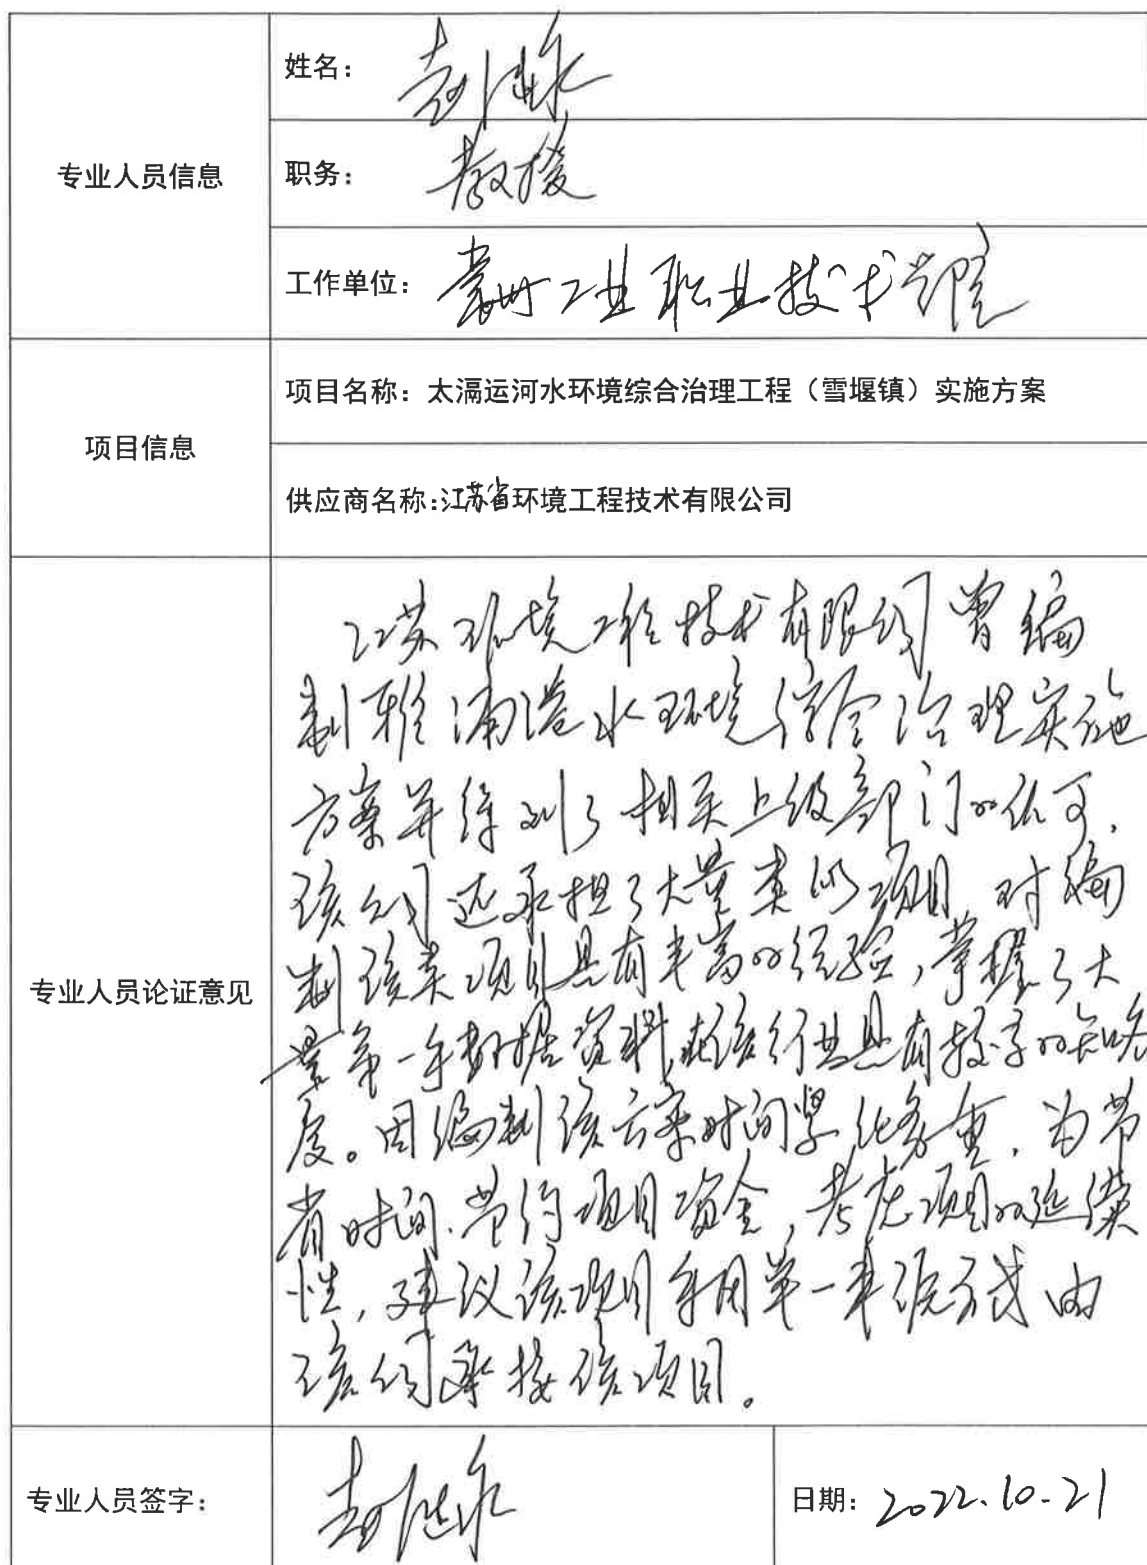 专业人员信息
姓名：
职务： 教授
工作单位： 常州工业职业技术学院
项目信息
项目名称：太滆运河水环境综合治理工程（雪堰镇）实施方案
供应商名称：江苏省环境工程技术有限公司
专业人员论证意见
江苏环境工程技术有限公司曾编
制雅浦港水环境综合治理实施
方案并得到了相关上级部门的认可，
该公司还承担了大量类似项目，对编
制该类项目具有丰富的经验，掌握了大
量第一手数据资料，在该行业具有较高的知晓
度。因编制该方案时间紧任务重，为节
省时间、节约项目资金，考虑项目的延续
性，建议该项目采用单一来源方式由
该公司承接该项目。
专业人员签字：
日期： 2022.10.21